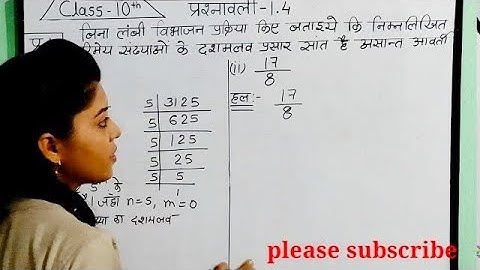 Class-10th प्रश्नावली-1.4
बिना लंबी विभाजन प्रक्रिया किए बताइये कि निम्नलिखित
संख्याओं के दशमलव प्रसार सांत है असान्त आवर्ती
(ii) 17/8
हल:- 17/8
5 | 3125
5 | 625
5 | 125
5 | 25
5 | 5
1
के
जहाँ n=5, m=0
का दशमलव
please subscribe